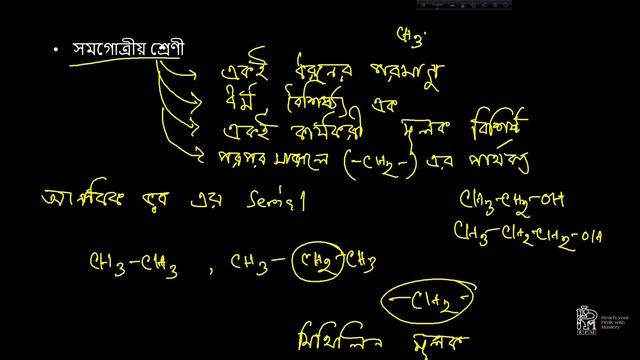 CH3
• সমগোত্রীয় শ্রেণী
একই ধরনের পরমানু
ধর্ম বৈশিষ্ট্য এক
একই কার্যকরী মূলক বিশিষ্ট
পরপর (-CH2-) এর পার্থক্য
আনবিক এর Serial
CH3-CH2-OH
CH3-CH2-CH2-OH
CH3-CH3 , CH3-CH2-CH3
-CH2-
মিথিলিন মূলক
Reach your
Peak with
Mastery
RPM